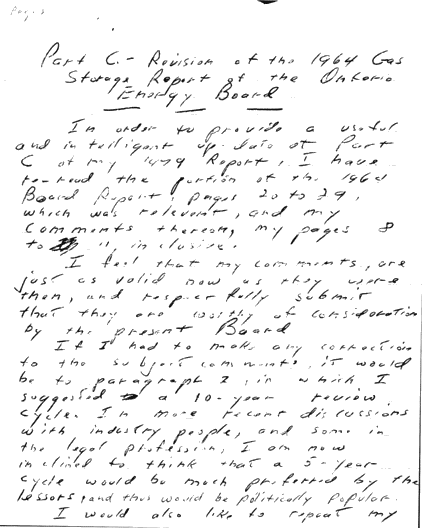 Part C. - Revision of the 1964 Gas
Storage Report of the Ontario
Energy Board
In order to provide a useful
and intelligent up-date of Part
C of my 1979 Report, I have
re-read the portion of the 1964
Board Report, pages 20 to 39,
which was relevent, and my
comments thereon, my pages 8
to 11, inclusive.
I feel that my comments, are
just as valid now as they were
then, and respectfully submit
that they are worthy of consideration
by the present Board
If I had to make any correction
to the subject comments, it would
be to paragraph 2, in which I
suggested a 10-year review
cycle. In more recent discussions
with industry people, and some in
the legal profession, I am now
inclined to think that a 5-year
cycle would be much preferred by the
Lessors, and thus would be politically popular.
I would also like to repeat my